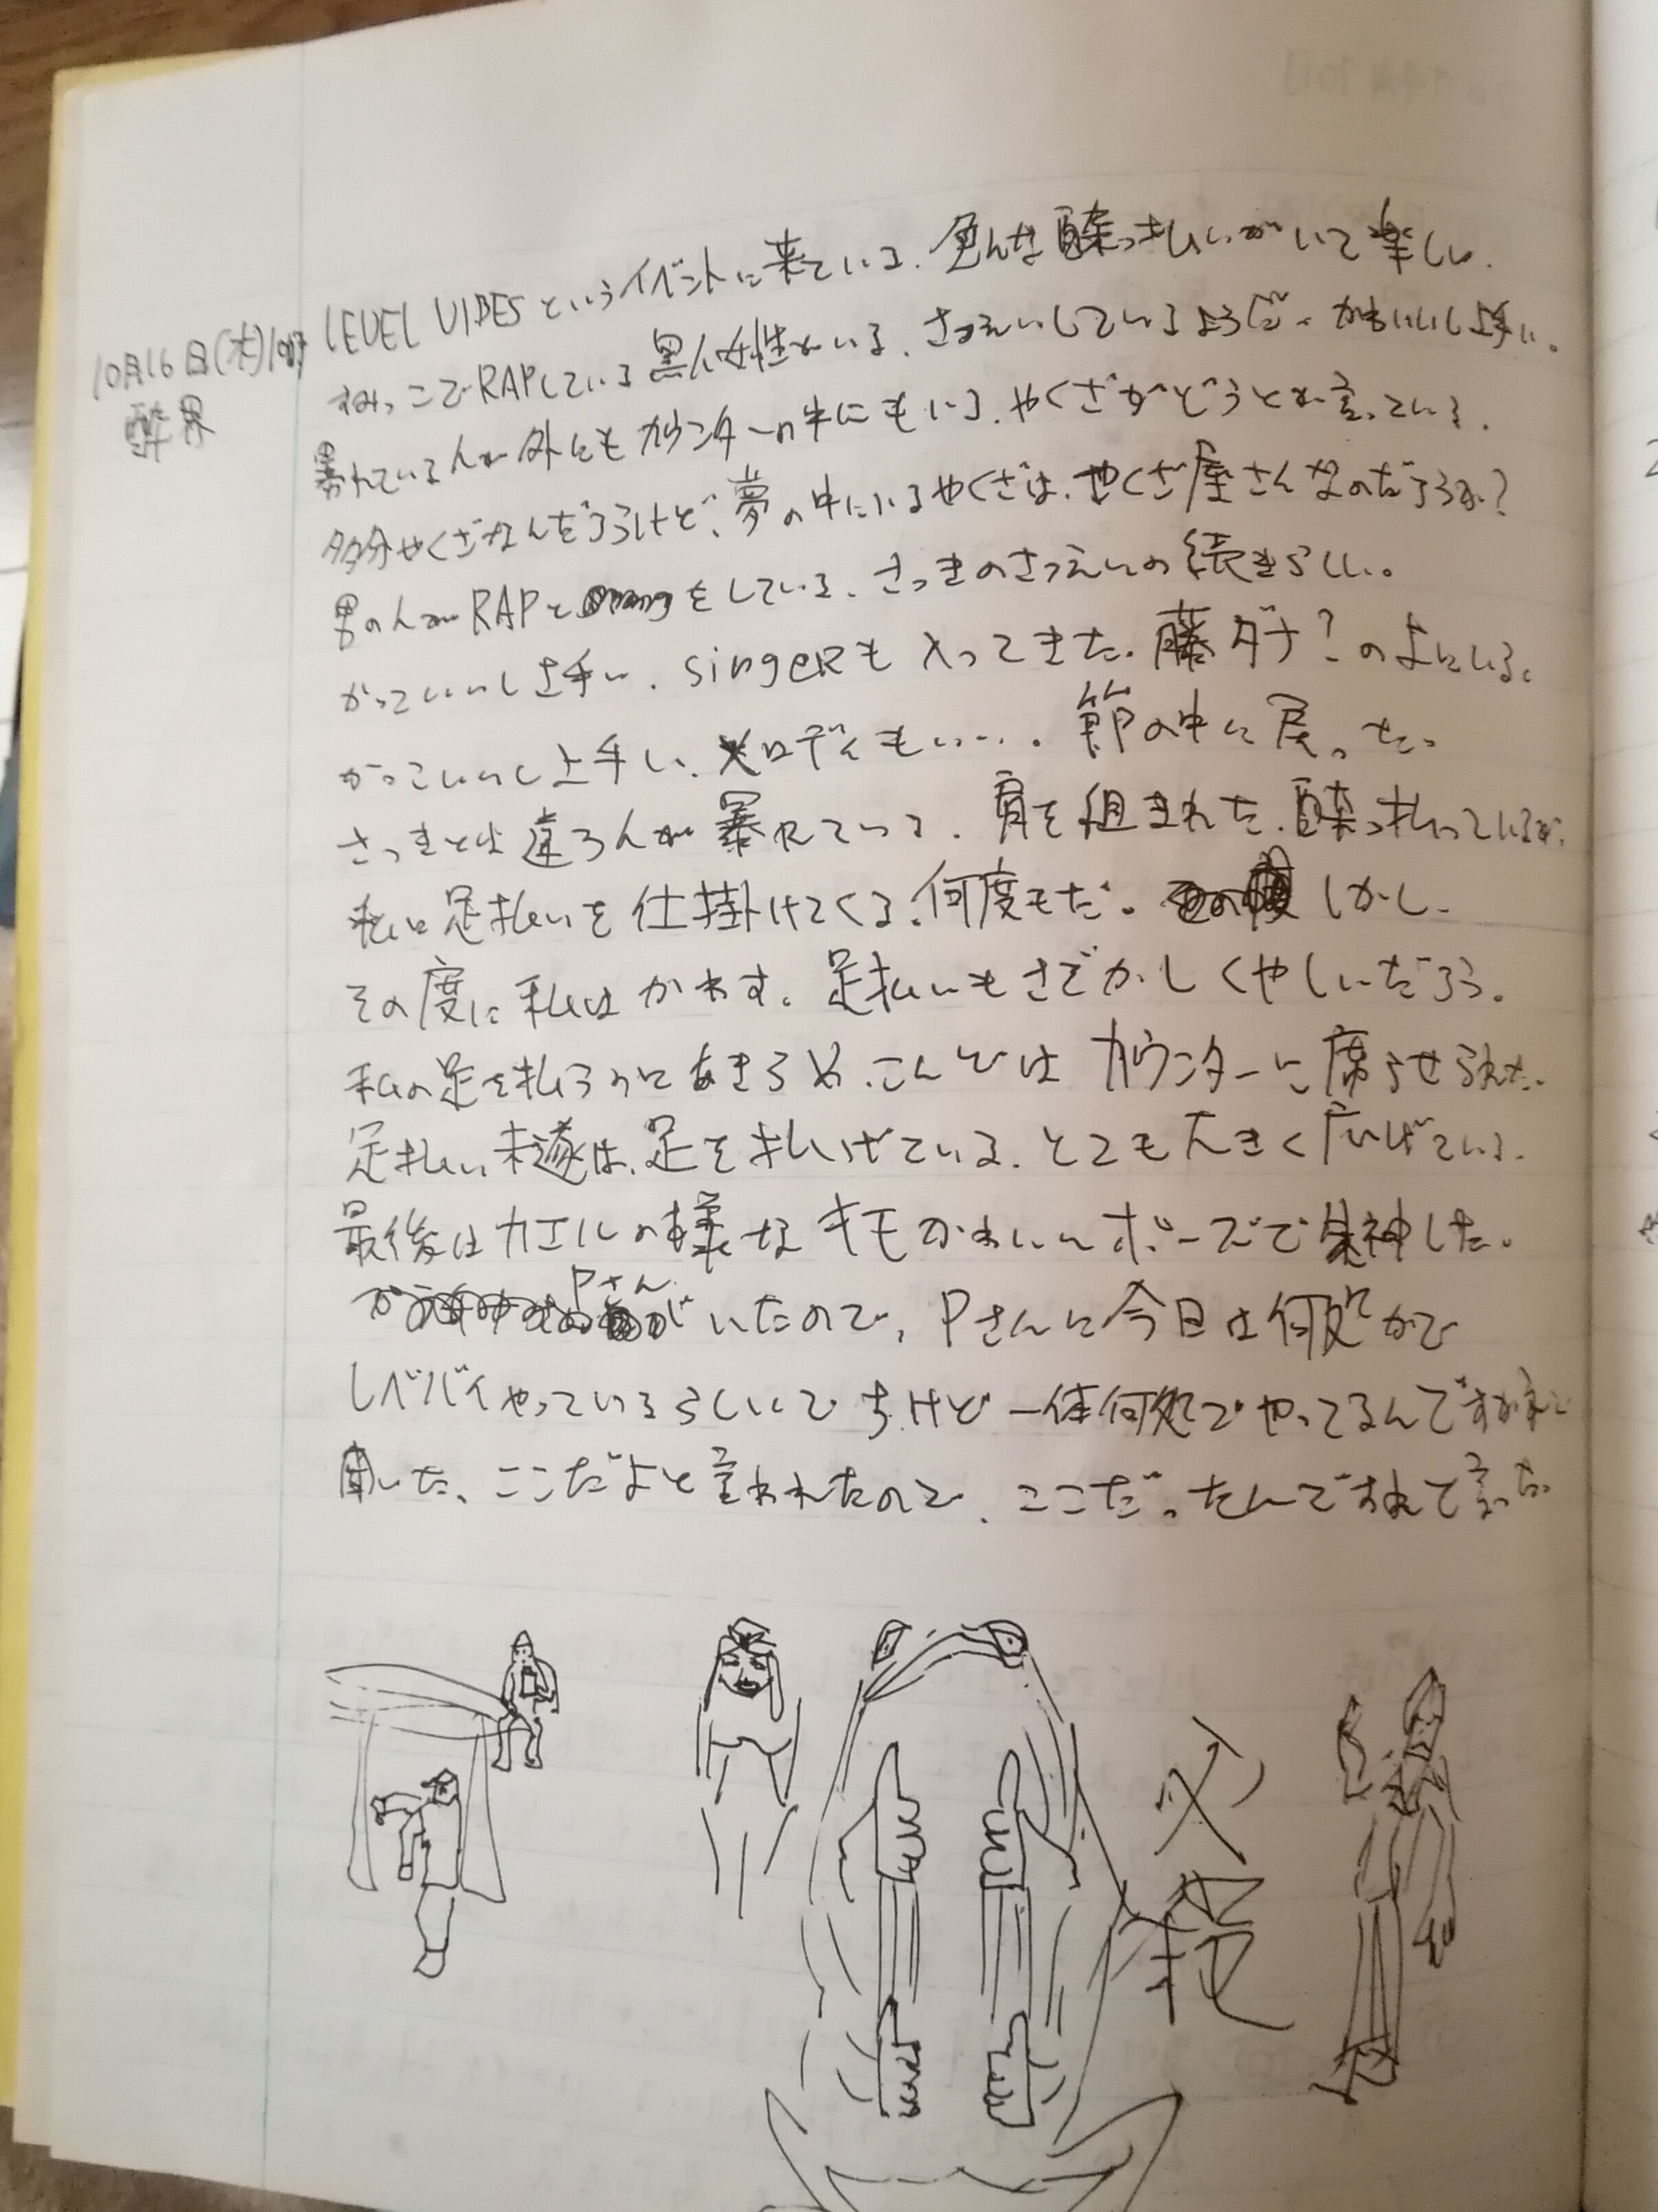 10月16日(水)
酔界
LEVEL VIBESというイベントに来ている。色んな酔っ払いがいて楽しい。
すみっこでRAPしている黒人女性がいる。さつえいしているようだ。かわいいし上手い。
暴れている人が外にもカウンターの中にもいる。やくざがどうとか言っている。
多分やくざなんだろうけど、夢の中にいるやくざは、やくざ屋さんなのだろうか?
男の人がRAPとをしている。さっきのさつえいの続きらしい。
かっこいいし上手い。singeRも入ってきた。藤ダナ?のよこにいる。
かっこいいし上手い、メロディもいい。節の中に戻った。
さっきとは違う人が暴れていて、肩を組まれた。酔っ払っているが、
私に足払いを仕掛けてくる。何度もだ。しかし
その度に私はかわす。足払いもさぞかしくやしいだろう。
私の足を払うのにあきらめ、こんどはカウンターに席らせられた。
足払い未遂は、足を広げている。とても大きく広げている。
最後はカエルの様なキモかわいいポーズで失神した。
Pさん
がいたので、Pさんに今日は何処かで
レベバイやっているらしいですけど一体何処でやってるんですかと
聞いた、ここだよと言われたので、ここだったんですねて言った。
父
親